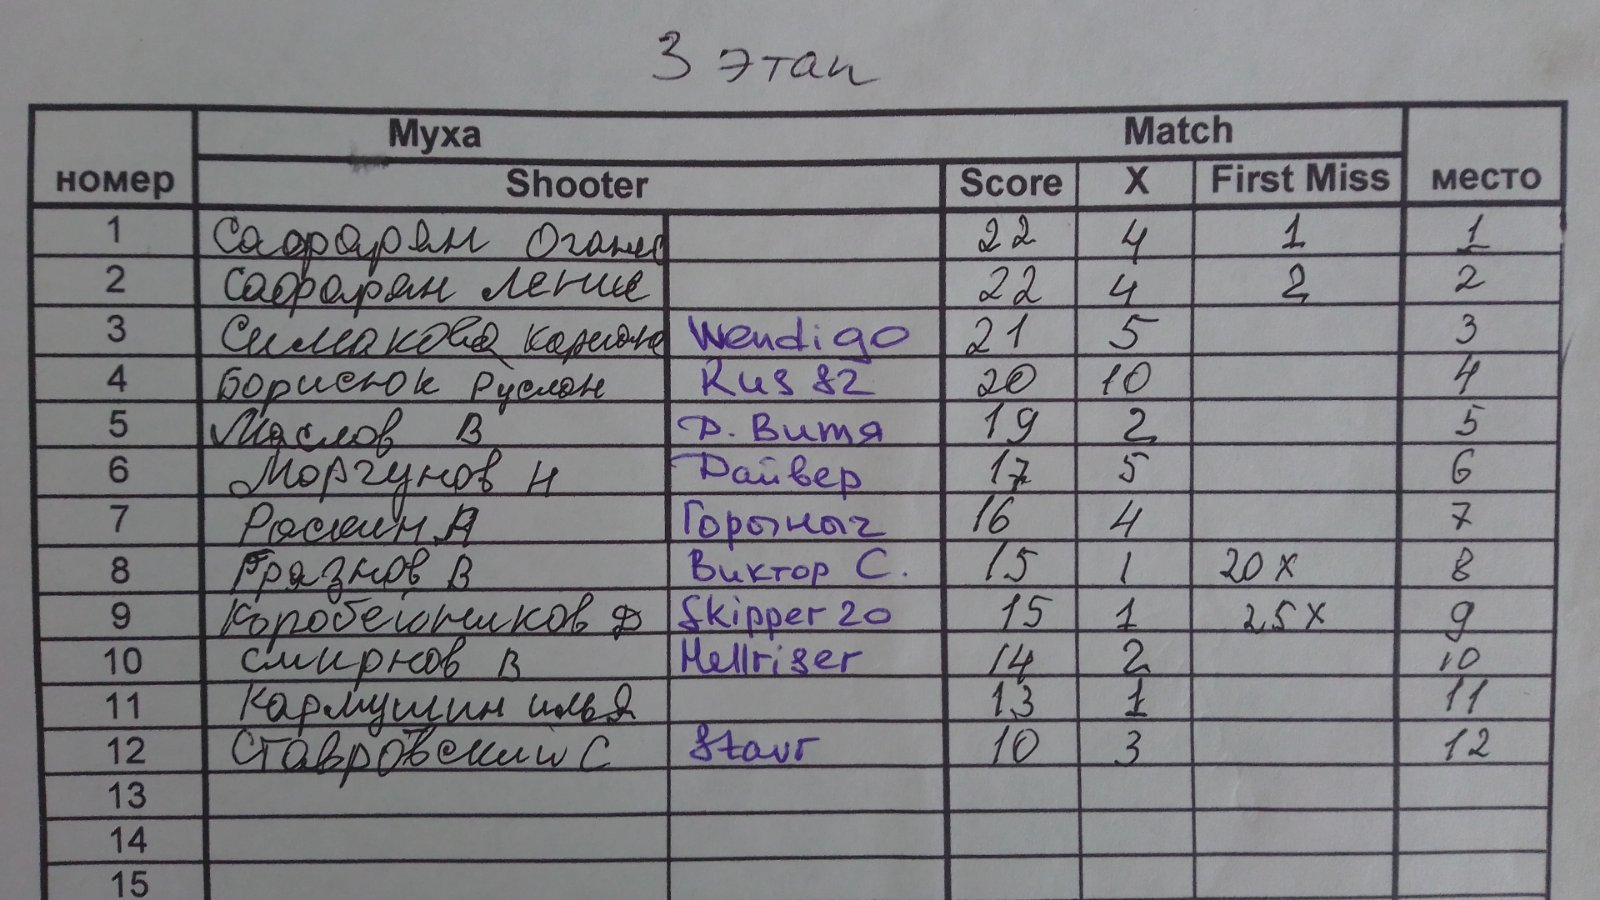 3 этап
Муха Match
номер Shooter Score X First Miss место
1 Сафарян Оганес 22 4 1 1
2 Сафарян Ленис 22 4 2 2
3 Симакова Карина Wendigo 21 5 3
4 Борисюк Руслан Rus 82 20 10 4
5 Маслов В Д. Витя 19 2 5
6 Моргунов Н Дайвер 17 5 6
7 А Горыныч 16 4 7
8 Грязнов В Виктор С. 15 1 20 x 8
9 Коробейников Д Skipper 20 15 1 25 x 9
10 Смирнов В Hellriser 14 2 10
11 Кармушин Илья 13 1 11
12 Ставровский С Stavr 10 3 12
13
14
15